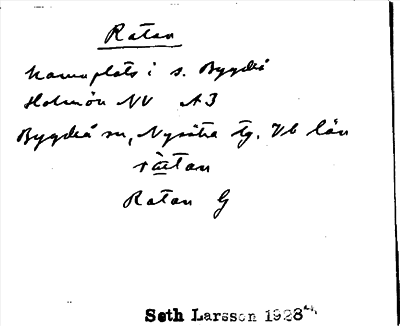 Ratan
Hamnplats i s. Bygdeå
Holmön NV A3
Bygdeå sn, Nysätra tg. Vb län
Ratan G
Seth Larsson 1928